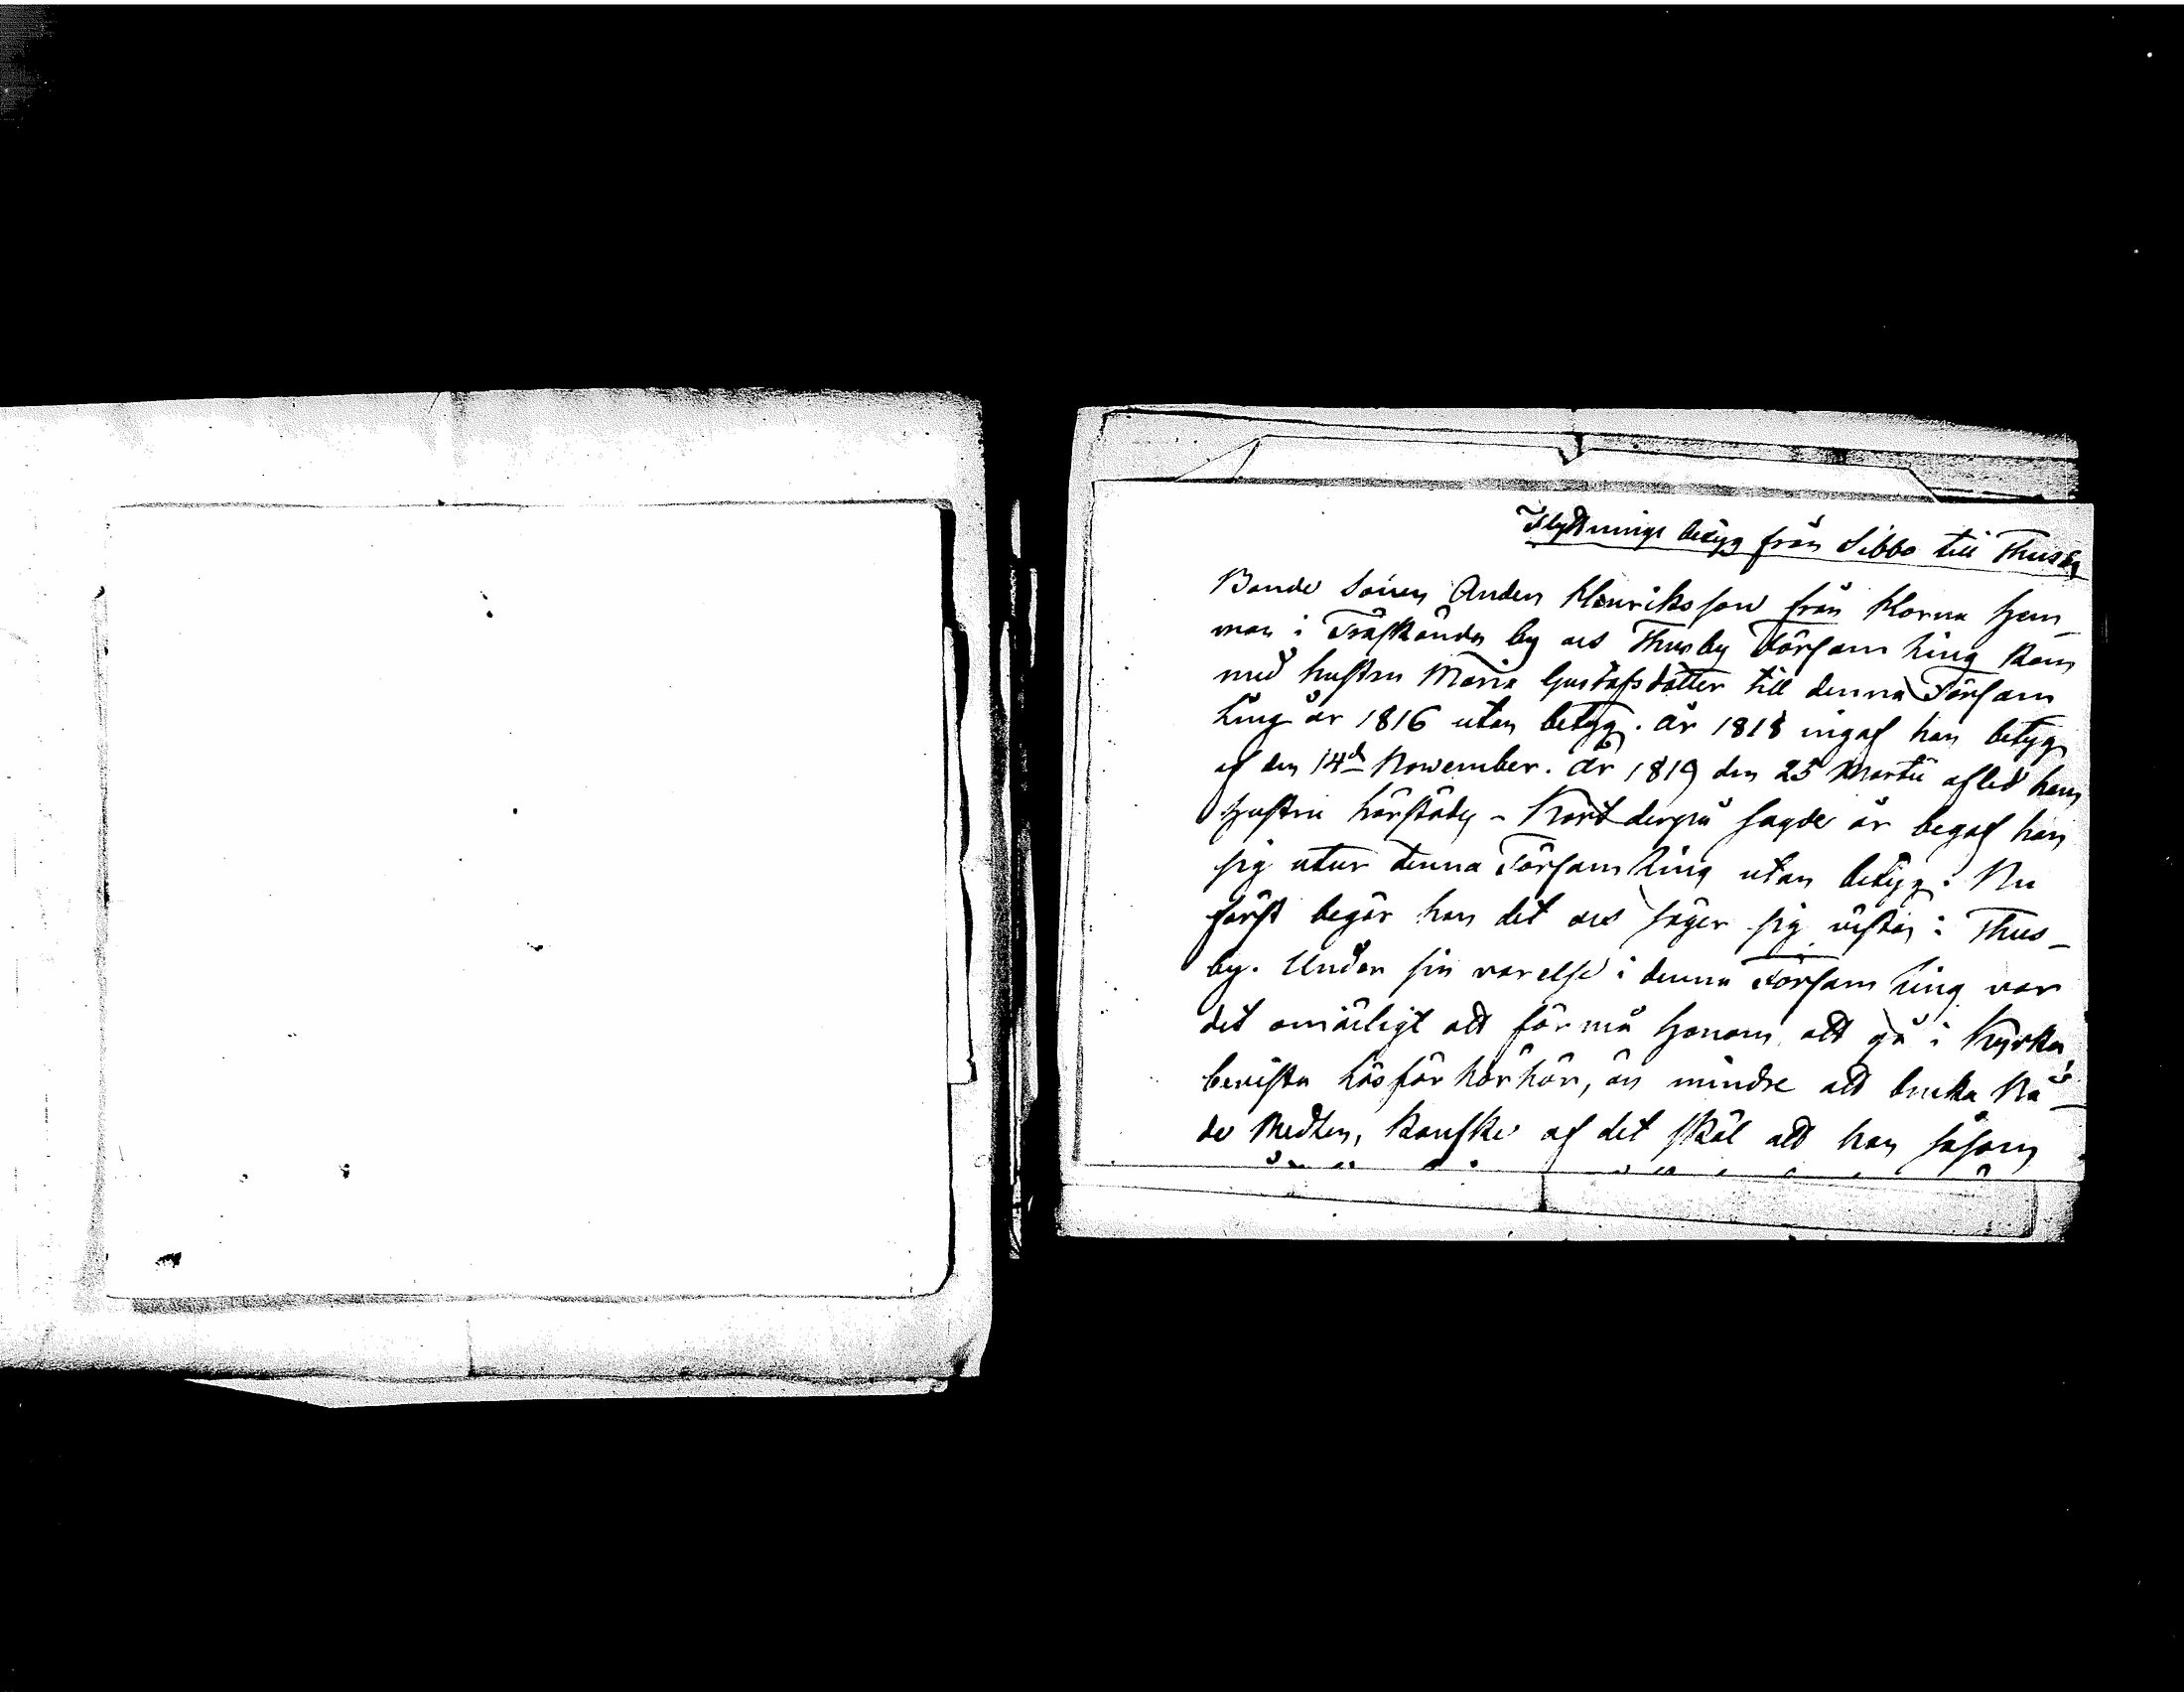 Flyttnings betyg från Sibbo till Thusby
Bonde Sonen Anders Henriksson från Klorna Hem_
man i Träskända by ock Thusby Församling kom
med hustru Maria Gustafsdotter till denna Försam
ling år 1816 utan betyg. År 1818 ingaf han betyg
af den 14d November. År 1819 den 25 Martii afled hans
Hustru härstädes - Kort derpå sagde år begaf han
sig utur denna Församling utan betyg. Nu
först begär han det ock säger sig vistas i Thus_
by. Under sin varelse i denna Församling var
det omöiligt att förmå Honom att gå i Kyrka,
bevista Läsförhör, än mindre att bruka Nå_
de Medlen, kanske af det skäl att han såsom